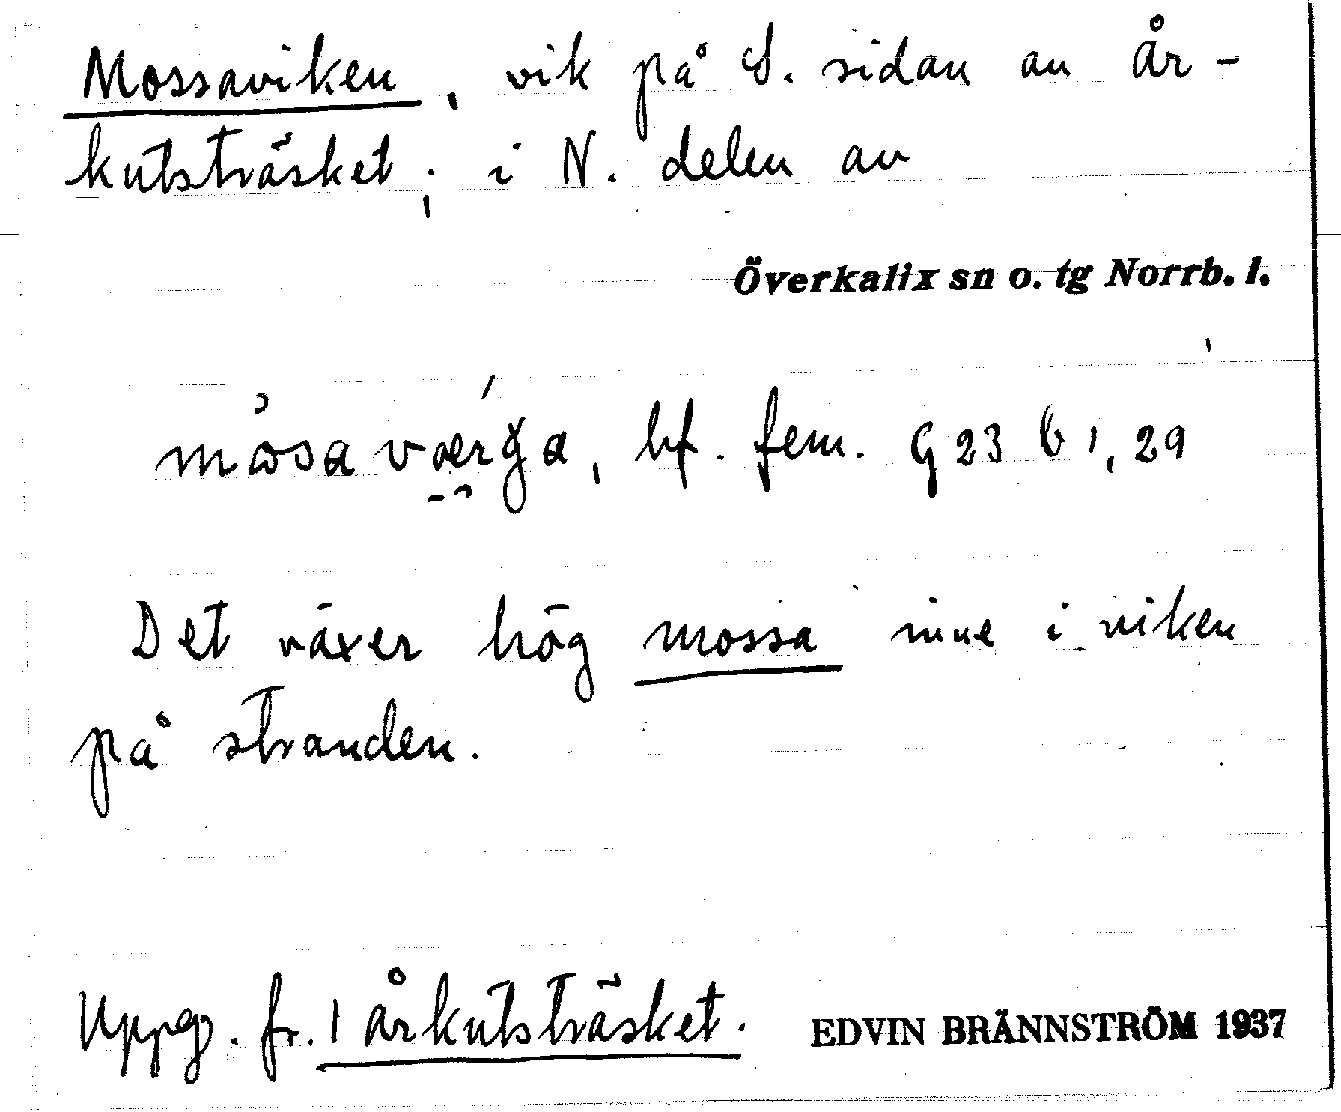 Mossaviken, vik på S. sidan av År-
kutsträsket; i N. delen av
Överkalix sn o. tg Norrb. l.
bf. fem. G 23 b 1, 29
Det växer hög mossa inne i viken
på stranden.
Uppg. fr. 1 årkutsträsket. EDVIN BRÄNNSTRÖM 1937